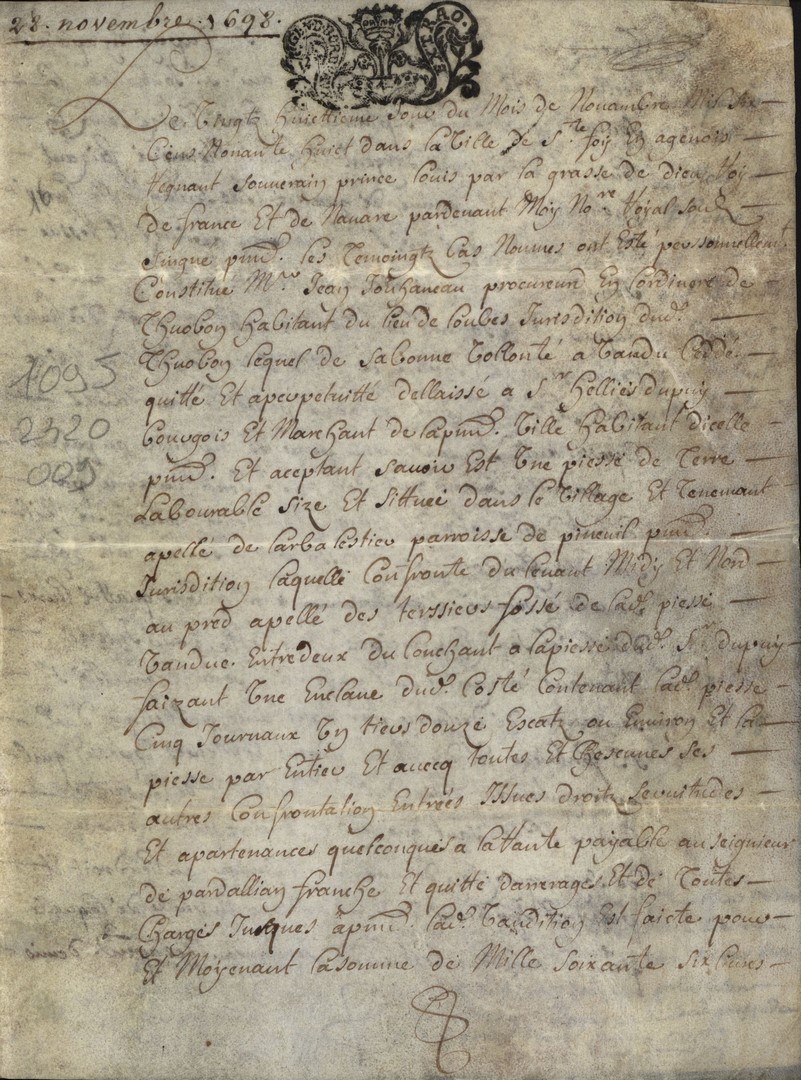 28. novembre. 1698.
GEN D BORD TRAO.
Le Vingtz huictieme Jour du Mois de Nouambre Mil six
Cens Nonante huict dans la Ville de Ste foy En agenois
Regnant souuerain prince louis par la grasse de dieu Roy
de france Et de Nauare pardeuant Moy Nore Royal soubz
signé pnt. les Temoingtz bas Nommes ont Esté personnellemt
Constitue Mre Jean procureurd En lordinere de
Thuobon habitant du lieu de loubes Jurisdition dud.
Thuobon lequel de sa bonne Vollonté a Vandu Ceddé
quitté Et aperpetuitté dellaissé a Sr hellies dupuy
bourgois Et Marchant de la pnt. Ville habitant dicelle
pnt. Et aceptant sauoir Est Vne piesse de Terre
Labourable size Et sittuée dans le Village Et Tenemant
apellé de larbalestier parroisse de pineuil pnt.
Jurisdition laquelle Confronte du leuant Midy Et Nord
au pred apellé des terssiers fossé de lad. piesse
Vandue. Entredeux du Couchant a la piesse dud. Sr dupuy
faizant Vne Enclaue dud. Costé Contenant lad. piesse
Cinq Journaux Vn tiers douze Escatz ou Enuiron Et la
piesse par Entier Et auecq toutes Et Chescunes ses
autres Confrontation Entrées Issues droitz seruitudes
Et apartenances quelconques a la Rante payable au seignieur
de pardallian franche Et quitte darrerages Et de Toutes
Charges Jusques apnt. lad. Vandition Est faicte pour
Et Moyenant la somme de Mille soixante six liures
1095
2320
005